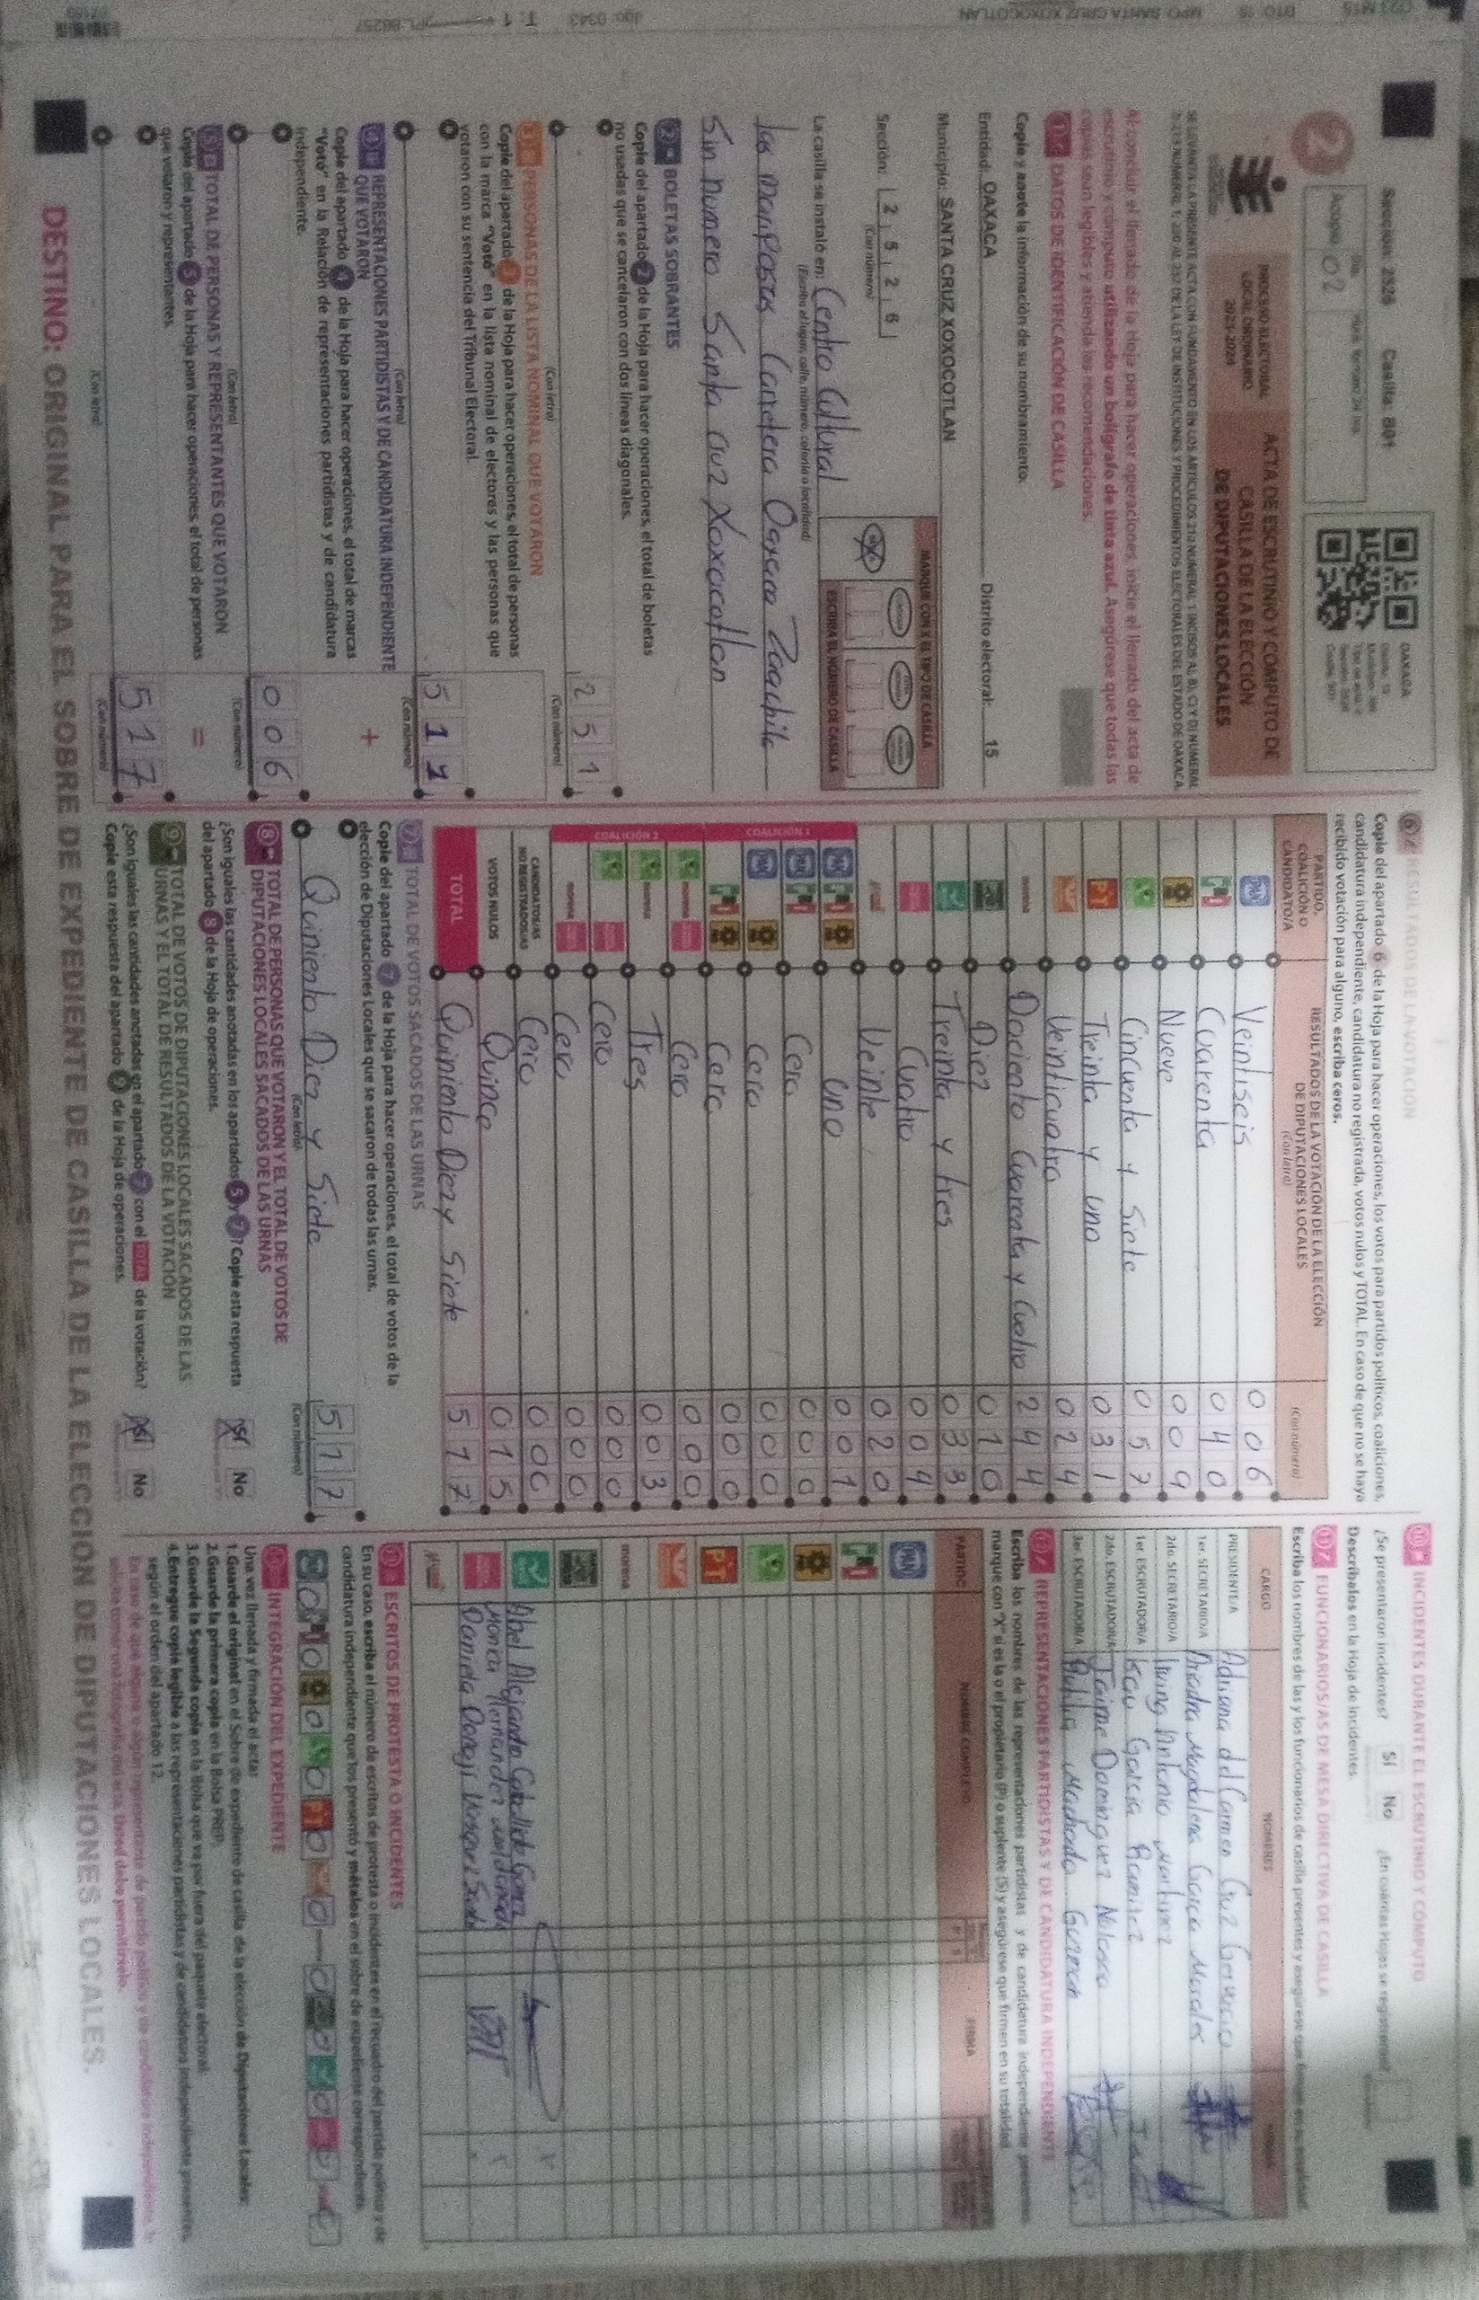 Sección: 2526 Casilla: B01
OAXACA
2
Acopio 02
PROCESO ELECTORAL
LOCAL ORDINARIO
2023-2024
ACTA DE ESCRUTINIO Y CÓMPUTO DE
CASILLA DE LA ELECCIÓN
DE DIPUTACIONES LOCALES
Al concluir el llenado de la Hoja para hacer operaciones, inicie el llenado del acta de
escrutinio y cómputo utilizando un bolígrafo de tinta azul. Asegúrese que todas las
copias sean legibles y atienda las recomendaciones.
1 DATOS DE IDENTIFICACIÓN DE CASILLA
Copie y anote la información de su nombramiento.
Entidad: OAXACA Distrito electoral: 15
Municipio: SANTA CRUZ XOXOCOTLAN
Sección: 2 5 2 6
(Con número)
MARQUE CON X EL TIPO DE CASILLA
ESCRIBA EL NÚMERO DE CASILLA
La casilla se instaló en: Centro Cultural
(Escriba el lugar, calle, número, colonia o localidad)
las mariposas Carretera Oaxaca Zaachila
Sin numero Santa cruz Xoxocotlan
2 BOLETAS SOBRANTES
Copie del apartado 2 de la Hoja para hacer operaciones, el total de boletas
no usadas que se cancelaron con dos líneas diagonales.
2 5 1
(Con letra) (Con número)
3 PERSONAS DE LA LISTA NOMINAL QUE VOTARON
Copie del apartado 3 de la Hoja para hacer operaciones, el total de personas
con la marca "Votó" en la lista nominal de electores y las personas que
votaron con su sentencia del Tribunal Electoral.
5 1 1
(Con letra) (Con número)
4 REPRESENTACIONES PARTIDISTAS Y DE CANDIDATURA INDEPENDIENTE
QUE VOTARON
+
Copie del apartado 4 de la Hoja para hacer operaciones, el total de marcas
"Votó" en la Relación de representaciones partidistas y de candidatura
independiente.
0 0 6
(Con letra) (Con número)
5 TOTAL DE PERSONAS Y REPRESENTANTES QUE VOTARON
=
Copie del apartado 5 de la Hoja para hacer operaciones, el total de personas
que votaron y representantes.
5 1 7
(Con letra) (Con número)
6 RESULTADOS DE LA VOTACIÓN
Copie del apartado 6 de la Hoja para hacer operaciones, los votos para partidos políticos, coaliciones,
candidatura independiente, candidatura no registrada, votos nulos y TOTAL. En caso de que no se haya
recibido votación para alguno, escriba ceros.
PARTIDO,
COALICIÓN O
CANDIDATO/A
RESULTADOS DE LA VOTACIÓN DE LA ELECCIÓN
DE DIPUTACIONES LOCALES
(Con letra) (Con número)
PAN Veintiseis 0 0 6
PRI Cuarenta 0 4 0
Nueve 0 0 9
Cincuenta y Siete 0 5 7
PT Treinta y Uno 0 3 1
Veinticuatro 0 2 4
morena Dociento Cuarenta y Cuatro 2 4 4
Diez 0 1 0
Treinta y tres 0 3 3
Cuatro 0 0 4
Veinte 0 2 0
COALICIÓN 1
Uno 0 0 1
Cero 0 0 0
Cero 0 0 0
Cero 0 0 0
COALICIÓN 2
Cero 0 0 0
Tres 0 0 3
Cero 0 0 0
Cero 0 0 0
CANDIDATOS/AS
NO REGISTRADOS/AS Cero 0 0 0
VOTOS NULOS Quince 0 1 5
TOTAL Quiniento Diez y Siete 5 1 7
7 TOTAL DE VOTOS SACADOS DE LAS URNAS
Copie del apartado 7 de la Hoja para hacer operaciones, el total de votos de la
elección de Diputaciones Locales que se sacaron de todas las urnas.
Quiniento Diez y Siete 5 1 7
(Con letra) (Con número)
8 TOTAL DE PERSONAS QUE VOTARON Y EL TOTAL DE VOTOS DE
DIPUTACIONES LOCALES SACADOS DE LAS URNAS
¿Son iguales las cantidades anotadas en los apartados 5 y 7? Copie esta respuesta
del apartado 8 de la Hoja de operaciones.
Sí No
9 TOTAL DE VOTOS DE DIPUTACIONES LOCALES SACADOS DE LAS
URNAS Y EL TOTAL DE RESULTADOS DE LA VOTACIÓN
¿Son iguales las cantidades anotadas en el apartado 7 con el TOTAL de la votación?
Copie esta respuesta del apartado 9 de la Hoja de operaciones.
Sí No
10 INCIDENTES DURANTE EL ESCRUTINIO Y CÓMPUTO
¿Se presentaron incidentes? Sí No ¿En cuántas Hojas se registraron?
Descríbalos en la Hoja de incidentes.
11 FUNCIONARIOS/AS DE MESA DIRECTIVA DE CASILLA
CARGO NOMBRES
PRESIDENTE/A Adriana del Carmen Cruz
1er. SECRETARIO/A Magdalena Garcia Morales
2do. SECRETARIO/A Irving Antonio Martinez
1er ESCRUTADOR/A Garcia Ramirez
2do. ESCRUTADOR/A Jaime Dominguez Nolasco
3er. ESCRUTADOR/A Machado Guzman
12 REPRESENTACIONES PARTIDISTAS Y DE CANDIDATURA INDEPENDIENTE
Escriba los nombres de las representaciones partidistas y de candidatura independiente presentes,
marque con "X" si es la o el propietario (P) o suplente (S) y asegúrese que firmen en su totalidad.
PARTIDO NOMBRE COMPLETO FIRMA
PAN
PRI
PT
morena
Abel Alejandro
Monica Hernandez
Daniela
13 ESCRITOS DE PROTESTA O INCIDENTES
En su caso, escriba el número de escritos de protesta o incidentes en el recuadro del partido político y de
candidatura independiente que los presentó y métalos en el sobre de expediente correspondiente.
14 INTEGRACIÓN DEL EXPEDIENTE
Una vez llenada y firmada el acta:
1. Guarde el original en el Sobre de expediente de casilla de la elección de Diputaciones Locales.
2. Guarde la primera copia en la Bolsa PREP.
3. Guarde la Segunda copia en la Bolsa que va por fuera del paquete electoral.
4. Entregue copia legible a las representaciones partidistas y de candidatura independiente presentes,
según el orden del apartado 12.
DESTINO: ORIGINAL PARA EL SOBRE DE EXPEDIENTE DE CASILLA DE LA ELECCIÓN DE DIPUTACIONES LOCALES.